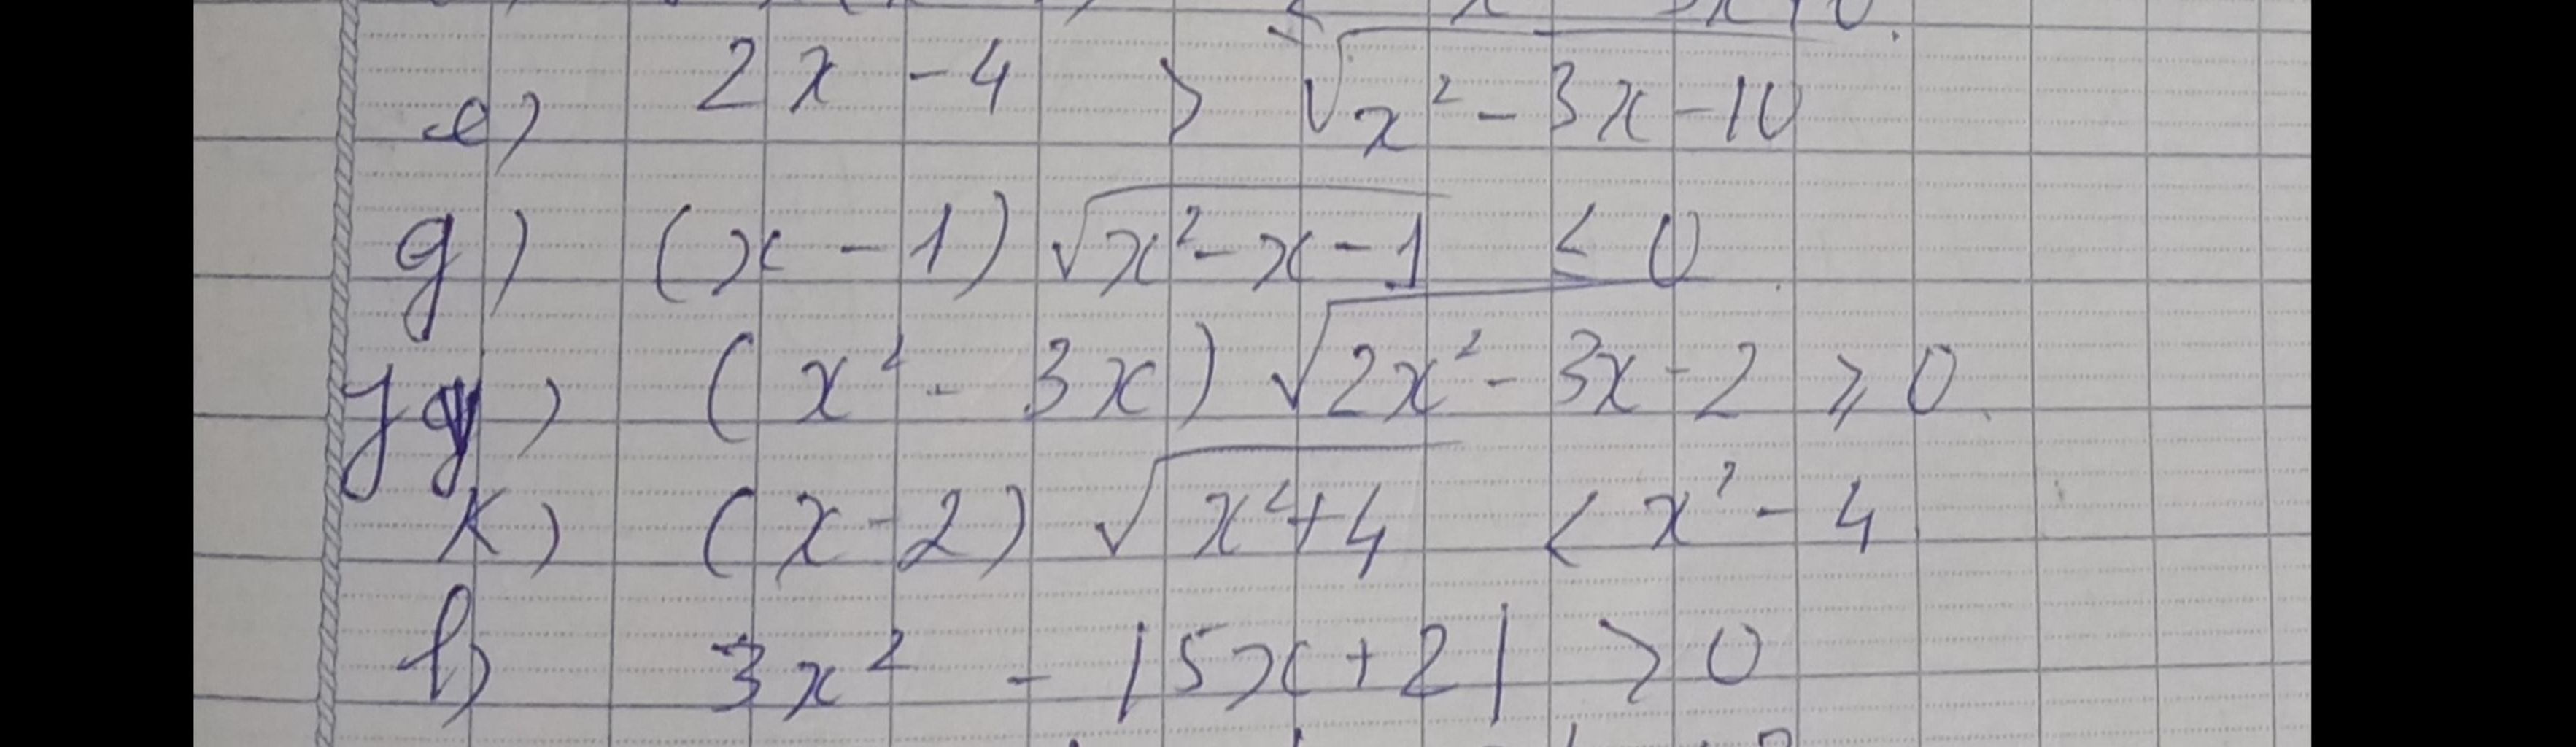 e) 2x - 4 > √x² - 3x - 10
g) (x - 1) √x² - x - 1 ≤ 0
y) (x² - 3x) √2x² - 3x - 2 ≥ 0
k) (x - 2) √x² + 4 < x² - 4
l) 3x² - |5x + 2| > 0